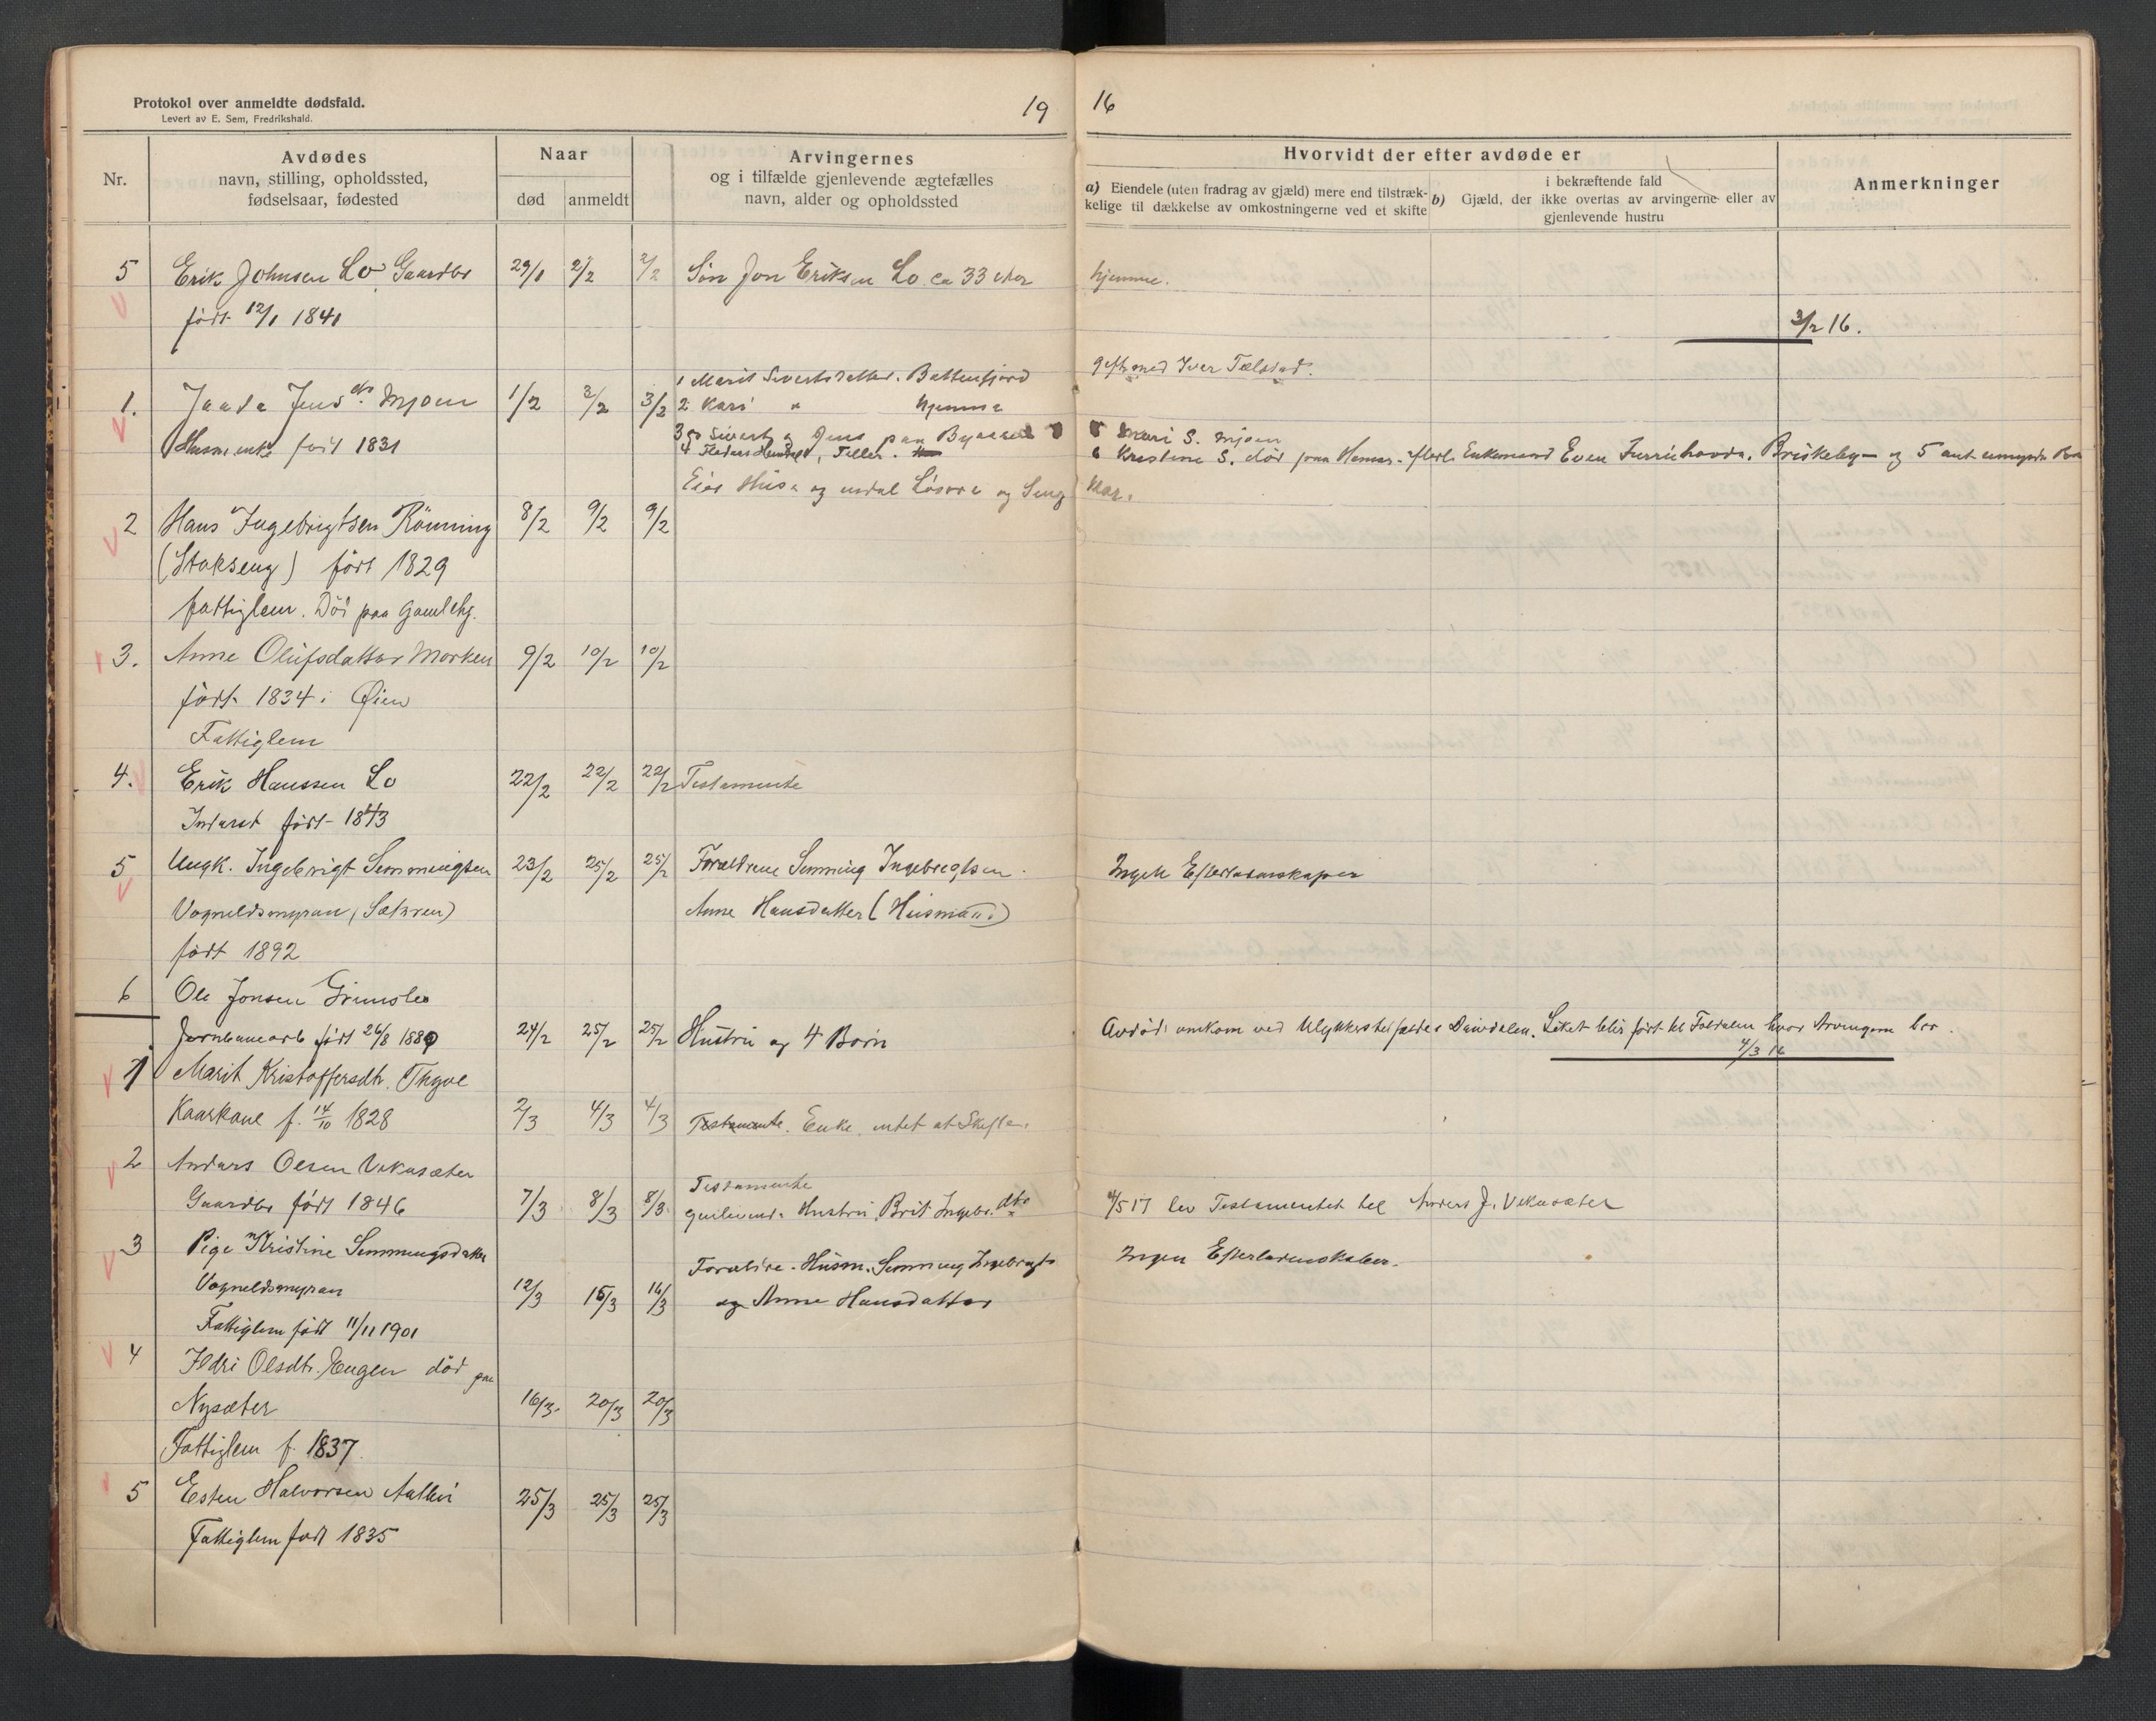 Protokol over anmeldte dødsfald.
Levert av E. Sem, Fredrikshald.
19 16
Nr.
Avdødes
navn, stilling, opholdssted,
fødselsaar, fødested
Naar
død anmeldt
Arvingernes
og i tilfælde gjenlevende ægtefælles
navn, alder og opholdssted
Hvorvidt der efter avdøde er
a) Eiendele (uten fradrag av gjæld) mere end tilstræk-
kelige til dækkelse av omkostningerne ved et skifte
i bekræftende fald
b) Gjæld, der ikke overtas av arvingerne eller av
gjenlevende hustru
Anmerkninger
5 Erik Johnsen Lo Gaardbr 29/1 2/2 2/2 Søn Jon Eriksen Lo ca 33 Aar hjemme.
født 12/1 1841
3/2 16.
1 Marit Sivertsdatter. Battenfjord gift med Iver Tælstad.
1. Jens dtr Mjoen 1/2 3/2 3/2 2 Kari " hjemme
Husm.enke født 1831
3 Sivert og Jens paa
5 Mari S. Mjoen
4 Tiller.
6 Kristine S. død paa Hamar. efterl. Enkemand Even Furruhovde, Briskeby og 5 
Eier Huse og endel Løsøre og Seng klær.
2 Hans Ingebrigtsen Rönning 8/2 9/2 9/2
(Stakseng) født 1829
fattiglem. Död paa Gamlehj.
3. Anne Olufsdatter Morken 9/2 10/2 10/2
født 1834 i Øien
Fattiglem
4. Erik Hanssen Lo 22/2 22/2 22/2 Testamente
Inderst født 1843
5 Ungk. Ingebrigt Semmingsen 23/2 25/2 25/2 Forældrene Semming Ingebregtsen. Ingen Efterladenskaper
Vognildsmyran (Sætren) Anne Hansdatter (Husmænd)
født 1892
6 Ole Jonsen Grimsbo
Jernbanearb født 26/8 1880 24/2 25/2 25/2 Hustru og 4 Børn
Avdøde omkom ved Drivdalen. Liket blir ført til Foldalen hvor Arvingerne bor.
4/3 16
1 Marit Kristoffersdtr. Thyve
Kaarkone f. 14/10 1828 2/3 4/3 4/3 Testamente. Enke. intet at Skifte.
2 Anders Olsen Vekasæter
Gaardbr født 1846 7/3 8/3 8/3 Testamente
Hustru Brit Ingebr. dtr 4/5 17 lev Testamentet til Anders J. Vekasæter
3 Pige Kristine Semmingsdatter
Forældre. Husm. Semming Ingebrigts Ingen Efterladenskaber.
Vognildsmyran 12/3 15/3 16/3 og Anne Hansdatter
Fattiglem født 11/11 1901
4 Ildri Olsdtr. Engen död paa
Nysæter 16/3 20/3 20/3
Fattiglem f. 1837
5 Esten Halvorsen Aalbu 25/3 25/3 25/3
Fattiglem født 1835